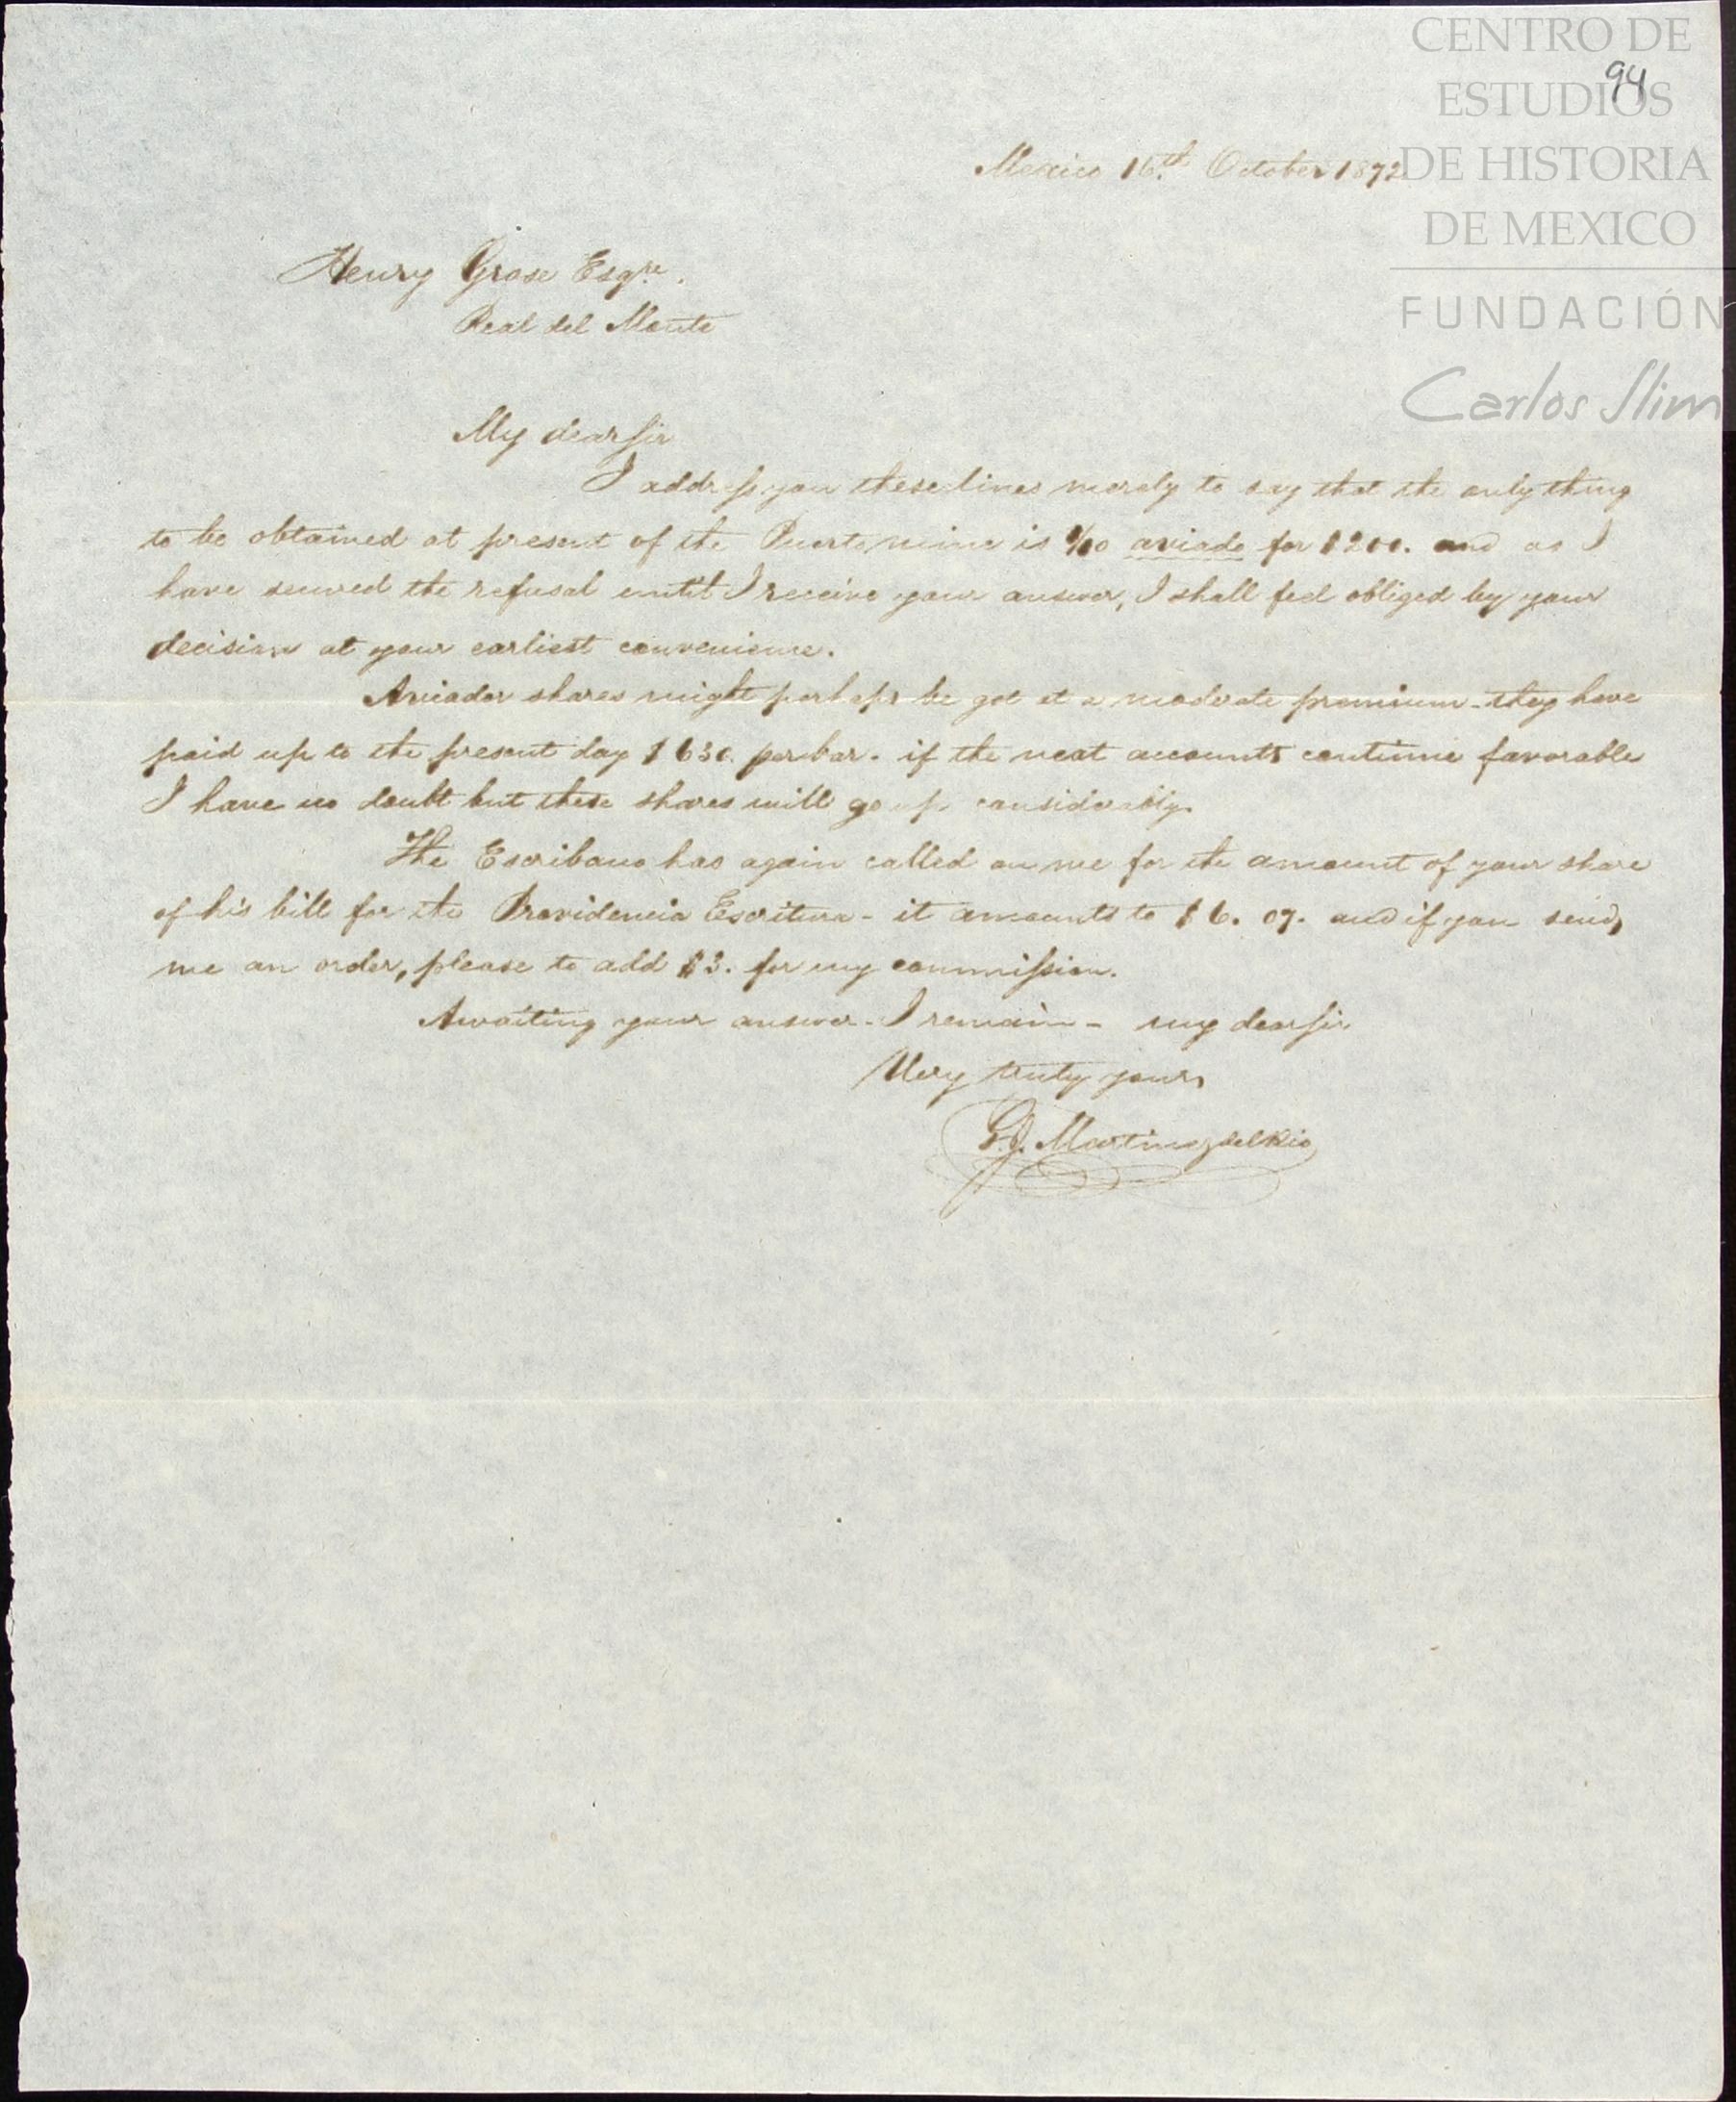 CENTRO DE
ESTUDIOS
DE HISTORIA
DE MEXICO
FUNDACIÓN
Carlos Slim
94
Mexico 16th October 1872
Henry Grose Esqre.
Real del Monte
My dear Sir
I address you these lines merely to say that the only thing
to be obtained at present of the Puerto mine is aviado for $200. and as I
have secured the refusal until I receive your answer, I shall feel obliged by your
decision at your earliest convenience.
Aviador shares might perhaps be got at a moderate premium - they have
paid up to the present day $630. per bar. if the next accounts continue favorable
I have no doubt but these shares will go up considerably.
The Escribano has again called on me for the amount of your share
of his bill for the Providencia Escritura - it amounts to $6. 07. and if you send
me an order, please to add $3. for my commission.
Awaiting your answer - I remain - my dear Sir
Very truly yours
Martinez del Rio